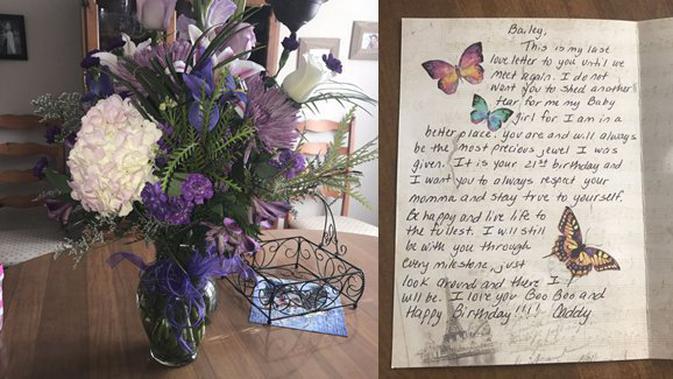 Bailey,
This is my last
love letter to you until we
meet again. I do not
want you to shed another
tear for me my Baby
girl for I am in a
better place. you are and will always
be the most precious jewel I was
given. It is your 21st birthday and
I want you to always respect your
momma and stay true to yourself.
Be happy and live life to
the fullest. I will still
be with you through
every milestone, just
look around and there I
will be. I love you Boo Boo and
Happy Birthday!!!! Daddy